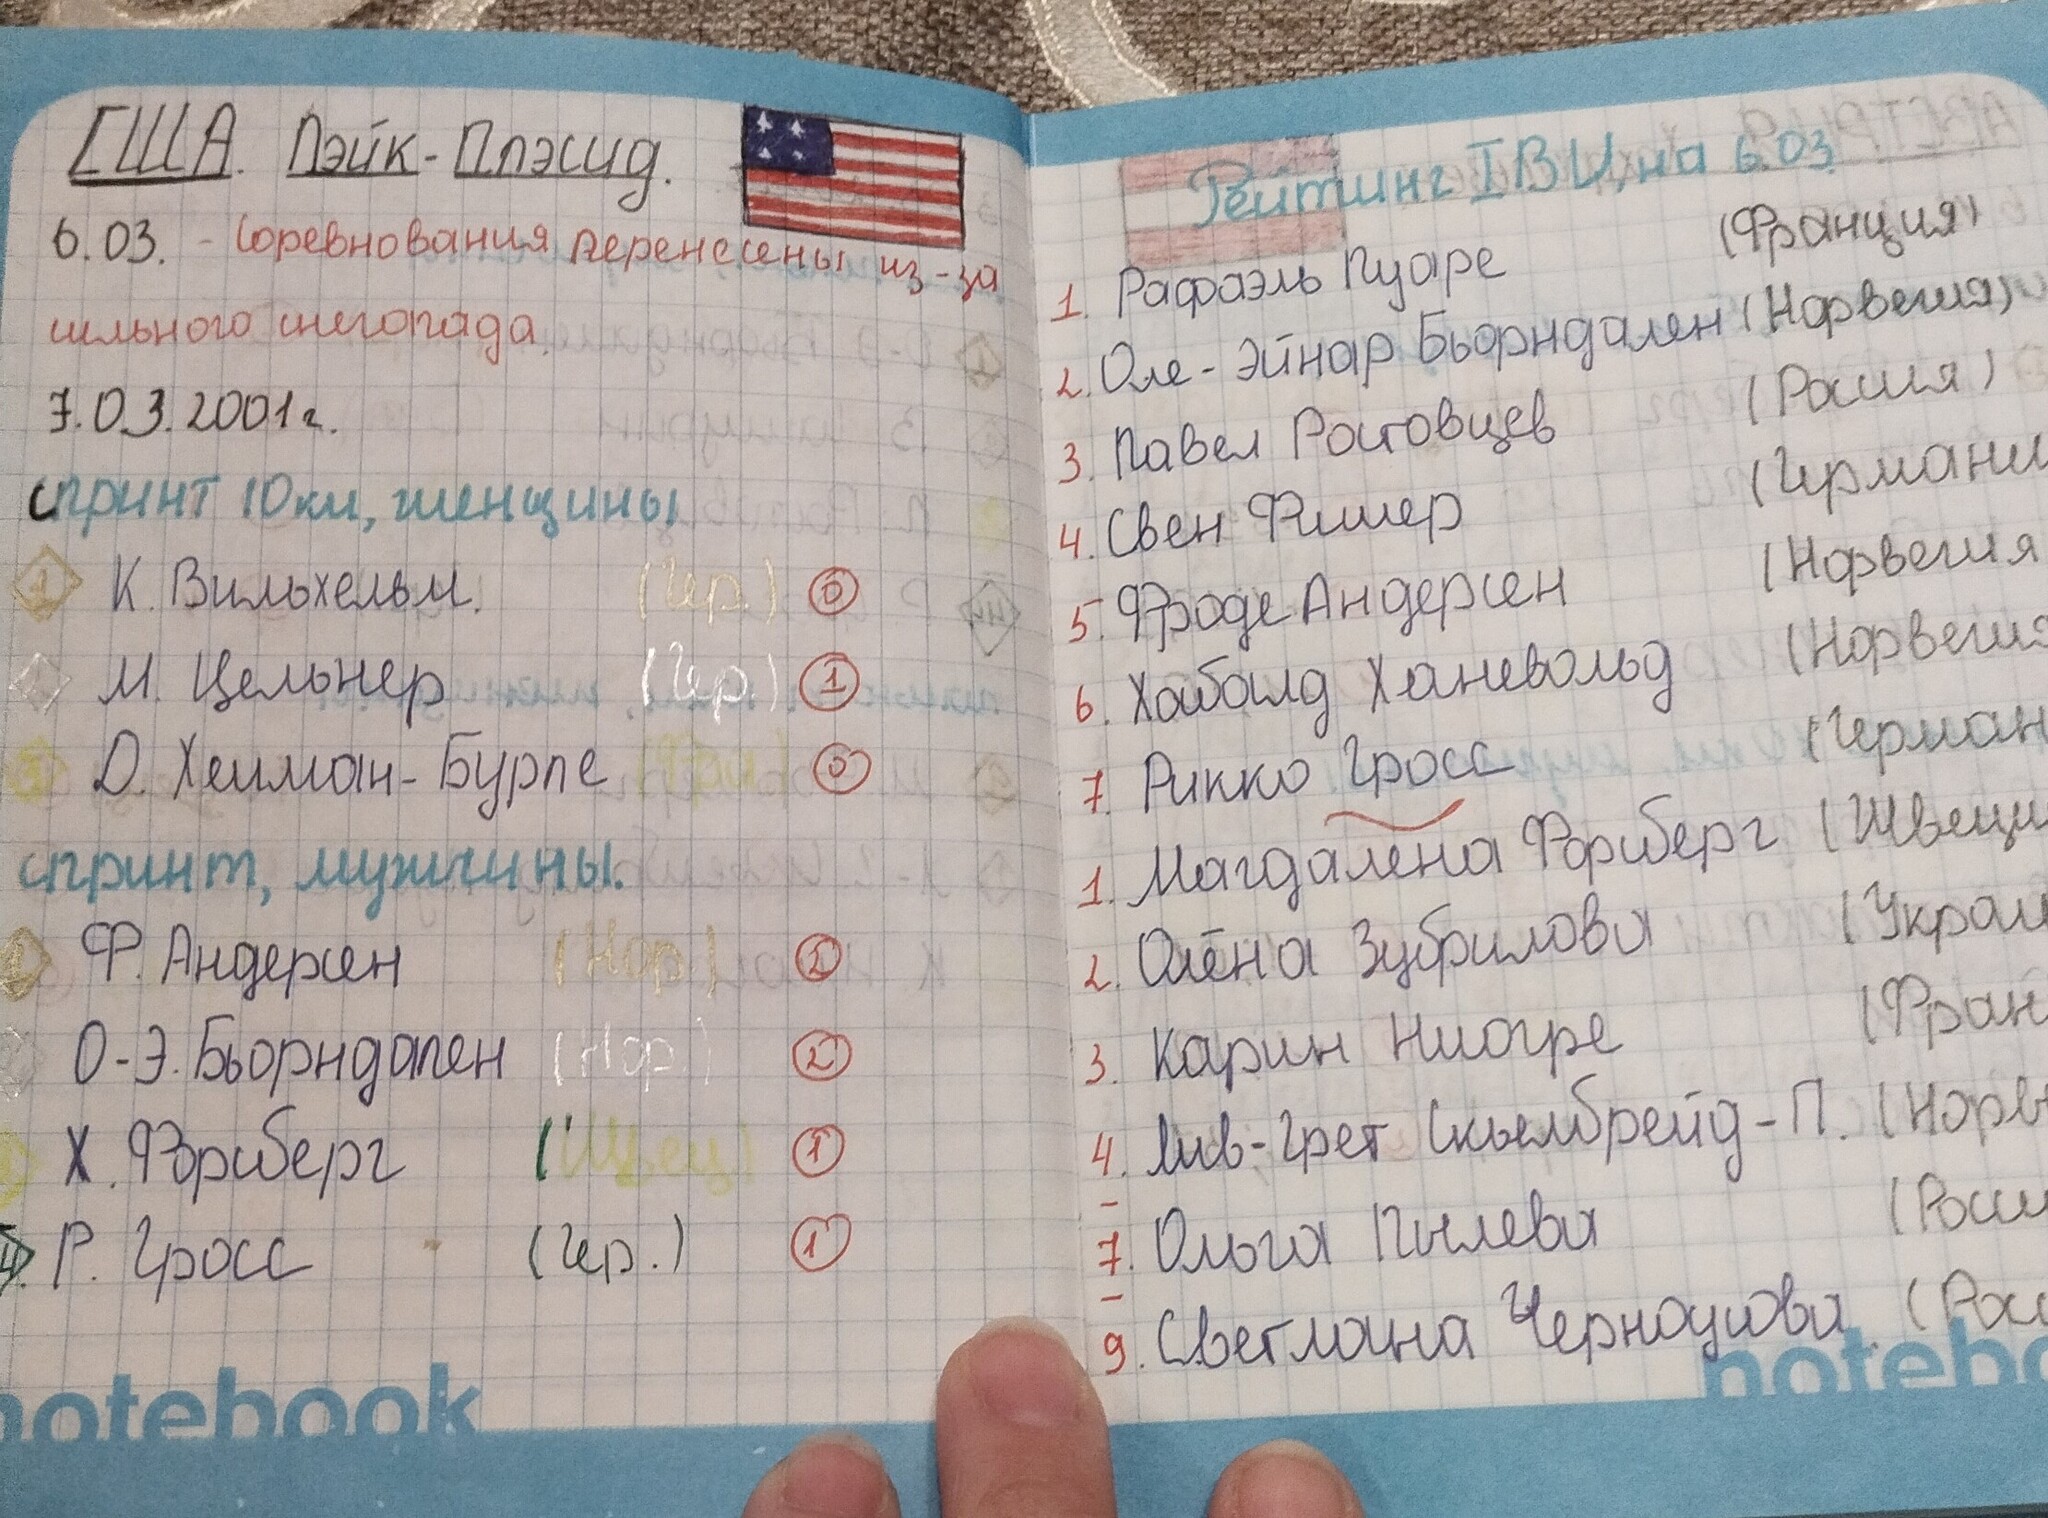 США. Лэйк-Плэсид.
6.03. - Соревнования перенесены из-за
сильного снегопада.
7.03.2001г.
спринт 10км, женщины
1 К. Вильхельм. (Гер.) 0
М. Цельнер (Гер.) 1
3 О. Хеиман-Бурпе 0
спринт, мужчины.
Ф. Андерсен (Нор.) 1
О-Э. Бьорндален (Нор.) 2
Х. Форсберг (Швец) 1
4. Р. Гросс (Гер.) 1
notebook
Рейтинг IBU, на 6.03.
1. Рафаэль Пуаре (Франция)
2. Оле-Эйнар Бьорндален (Норвегия)
3. Павел Ростовцев (Россия)
4. Свен Фишер (Германи
5. Фроде Андерсен (Норвегия
6. Халвалд Ханевольд (Норвегия
7. Рикко Гросс (Герман
1. Магдалена Форсберг (Швеци
2. Олена Зубрилова (Украи
3. Карин Ниогре (Фран
4. Лив-Грет Скьелбрейд-П. (Норв
-
7. Ольга Пылева (Росси
-
9. Светлана Черноусова (Росс
notebo